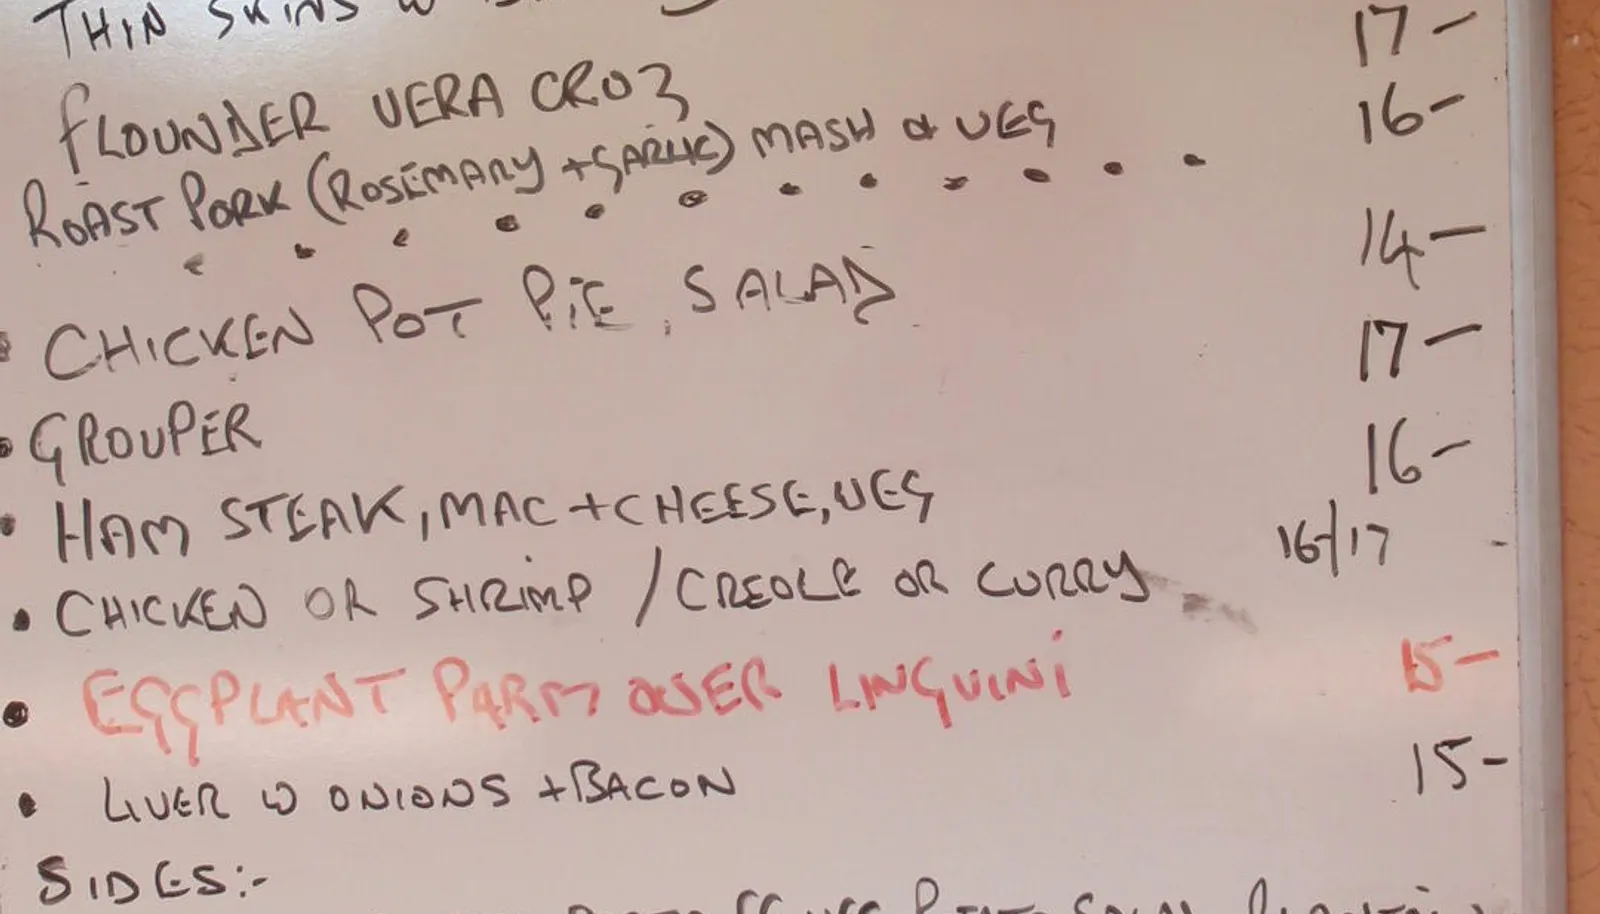 THIN SKINS W
FLOUNDER VERA CRUZ 17-
ROAST PORK (ROSEMARY + GARLIC) MASH & VEG 16-
CHICKEN POT PIE, SALAD 14-
GROUPER 17-
HAM STEAK, MAC + CHEESE, VEG 16-
CHICKEN OR SHRIMP / CREOLE OR CURRY 16-/17-
EGGPLANT PARM OVER LINGUINI 15-
LIVER W ONIONS + BACON 15-
SIDES:-